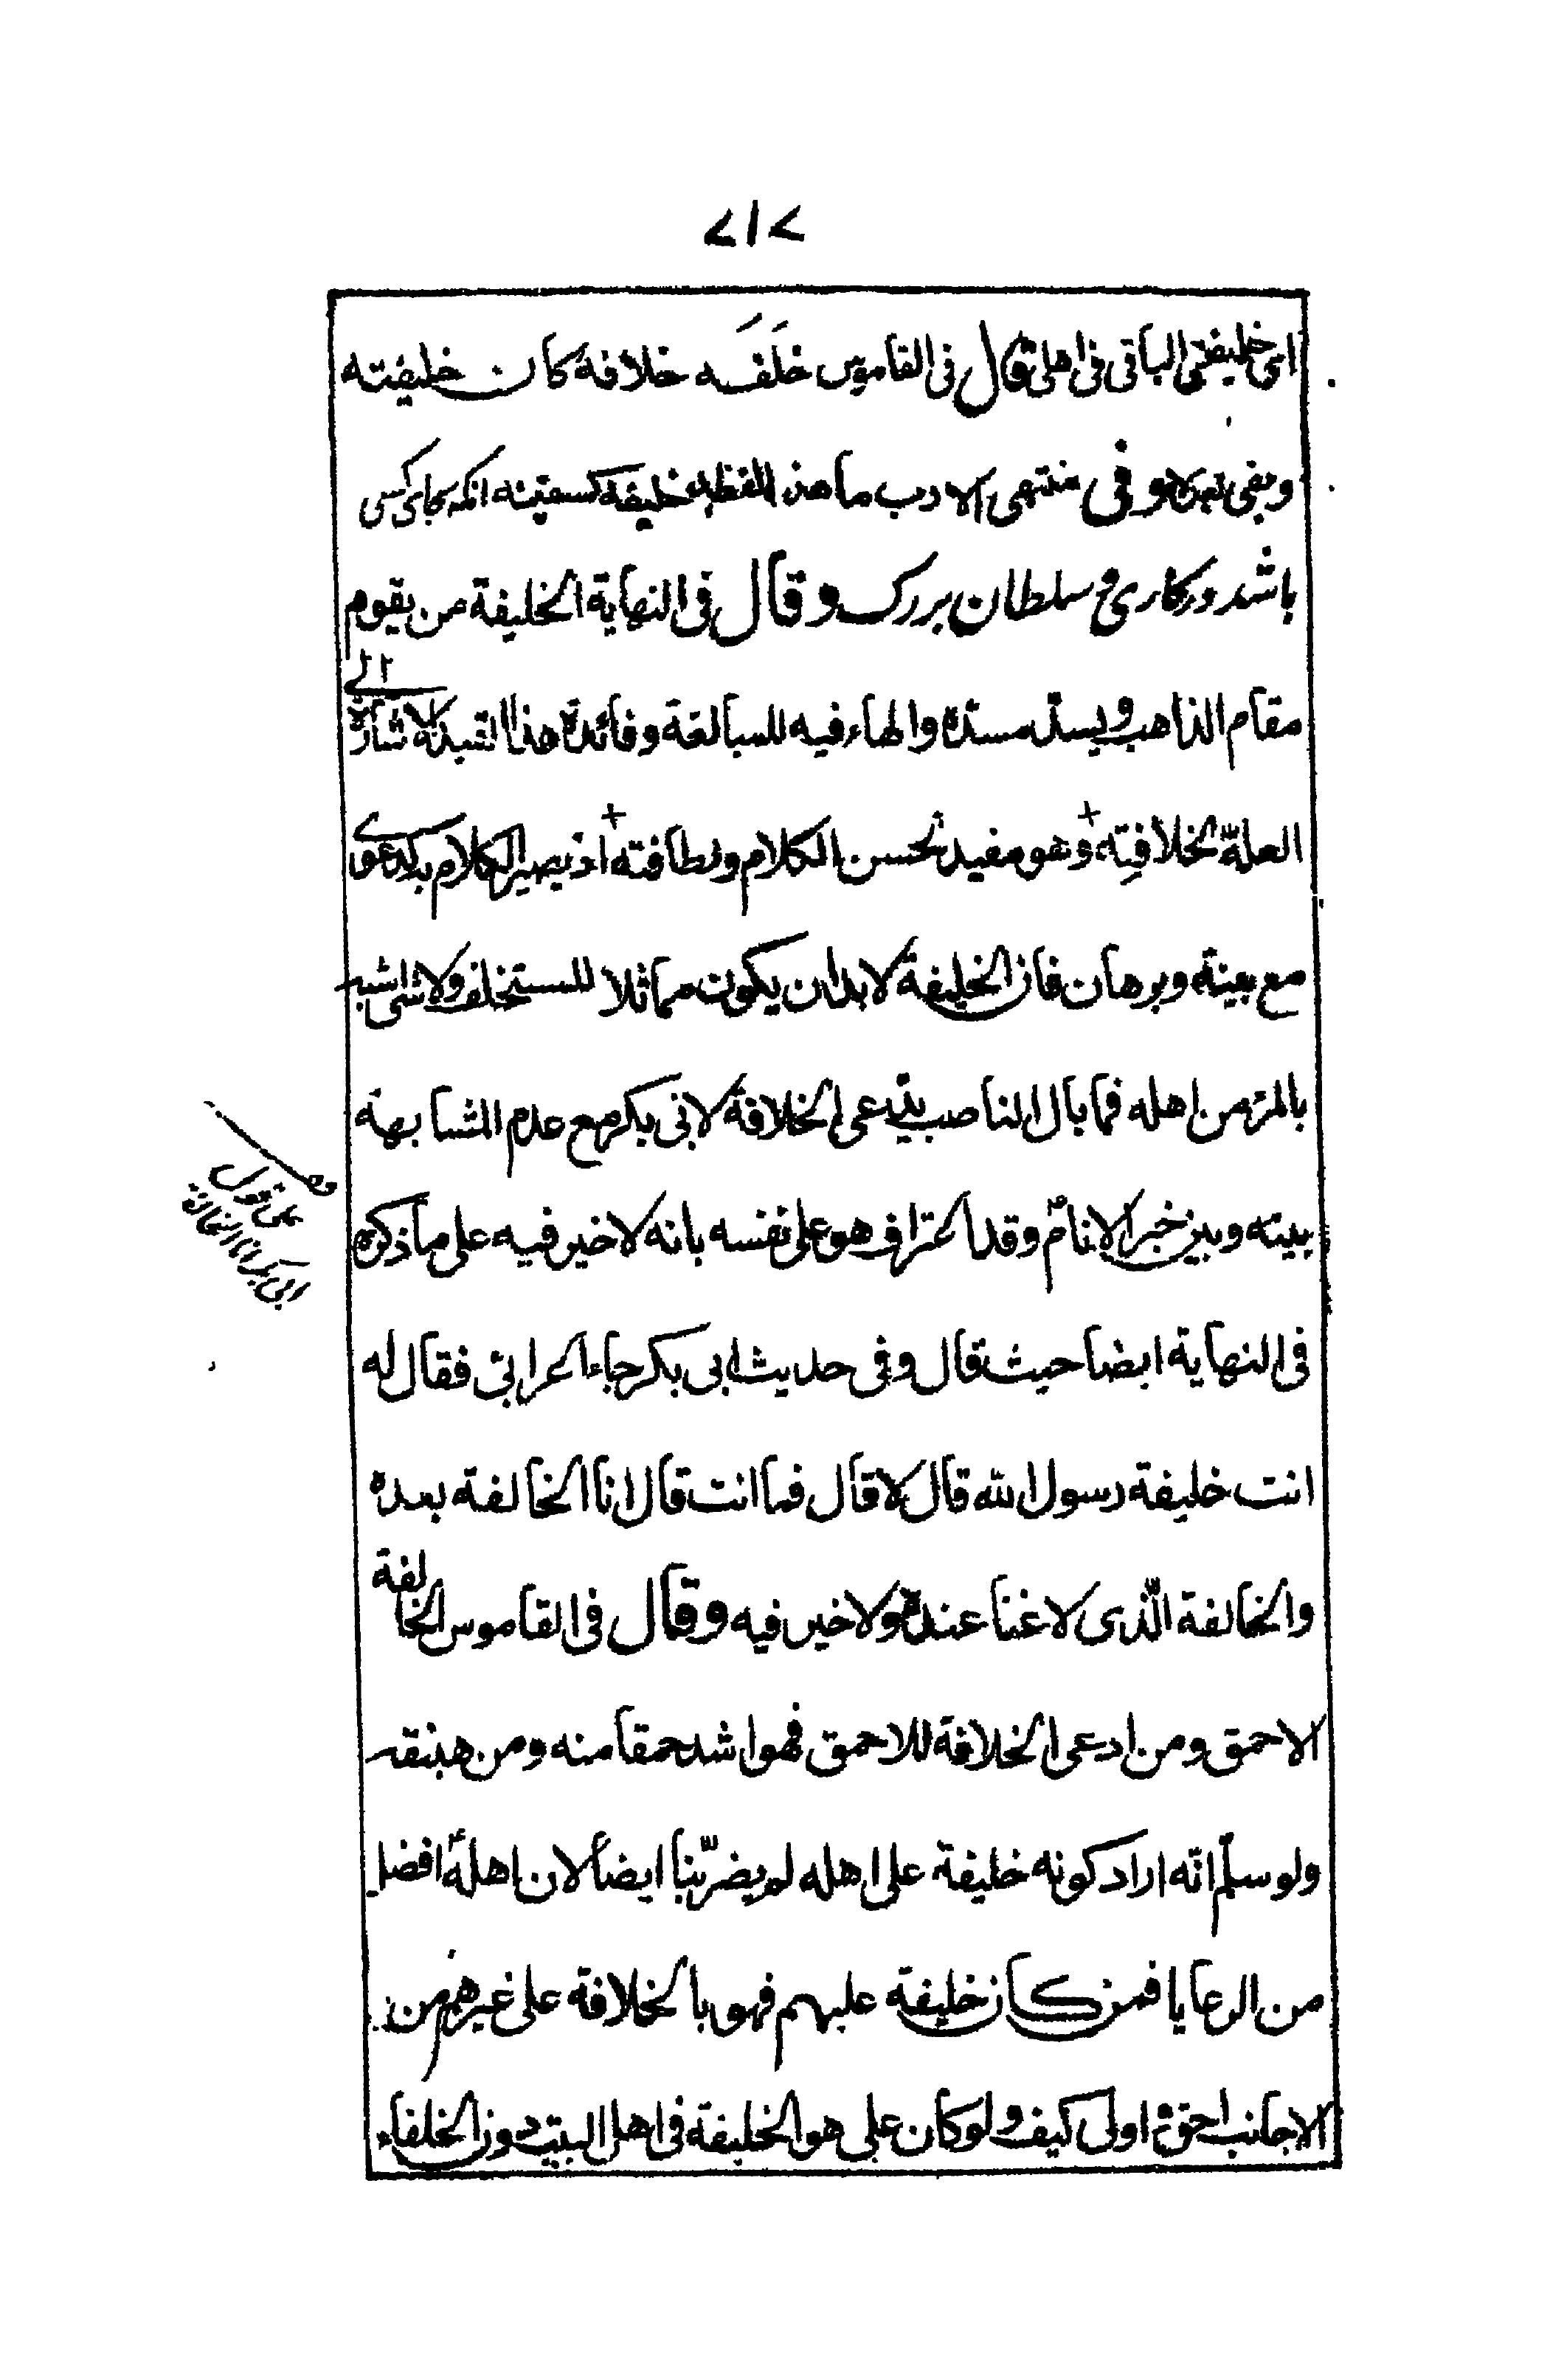 ٢١٢
اى خليفتى الباقى فى اهلى قال فى القاموس خَلَفَه خلافة كان خليفته
وبقى بعده وفى منتهى الادب ما هذا لفظه خليفة كسفينة انكه بجاى كسى
باشد در كارى و سلطان بزرك وقال فى النهاية الخليفة من يقوم
مقام الذاهب ويسدّ مسدّه والهاء فيه للمبالغة وفائدة هذا التقييد الاشارة الى
العلة الخلافية وهو مفيد لحسن الكلام ولطافته اذ يصير الكلام بدعوى
مع بينة وبرهان فان الخليفة لابد ان يكون مماثلا للمستخلف ولا شئ اشبه
بالمرء من اهله فما بال الناصب يدّعى الخلافة لابى بكر مع عدم المشابهة
بينه وبين خير الانامؐ وقد اعترف هو على نفسه بانه لا خير فيه على ما ذكره
فى النهاية ايضا حيث قال وفى حديث ابى بكر جاء اعرابى فقال له
انت خليفة رسول الله قال لا قال فما انت قال انا الخالفة بعده
والخالفة الّذى لا غنا عنده ولا خير فيه وقال فى القاموس الخالفة
الاحمق ومن ادعى الخلافة للاحمق فهو اشد حمقا منه ومن هبنقه
ولو سلّم انّه اراد كونه خليفة على اهله لم يضرّبنا ايضاً لان اهلهؐ افضل
من الرعايا فمن كان خليفة عليهم فهو بالخلافة على غيرهم من
الاجانب احق و اولى كيف ولو كان على هو الخليفة فى اهل البيت دون الخلفاء
على قول
ابى بكر انا الخالفة